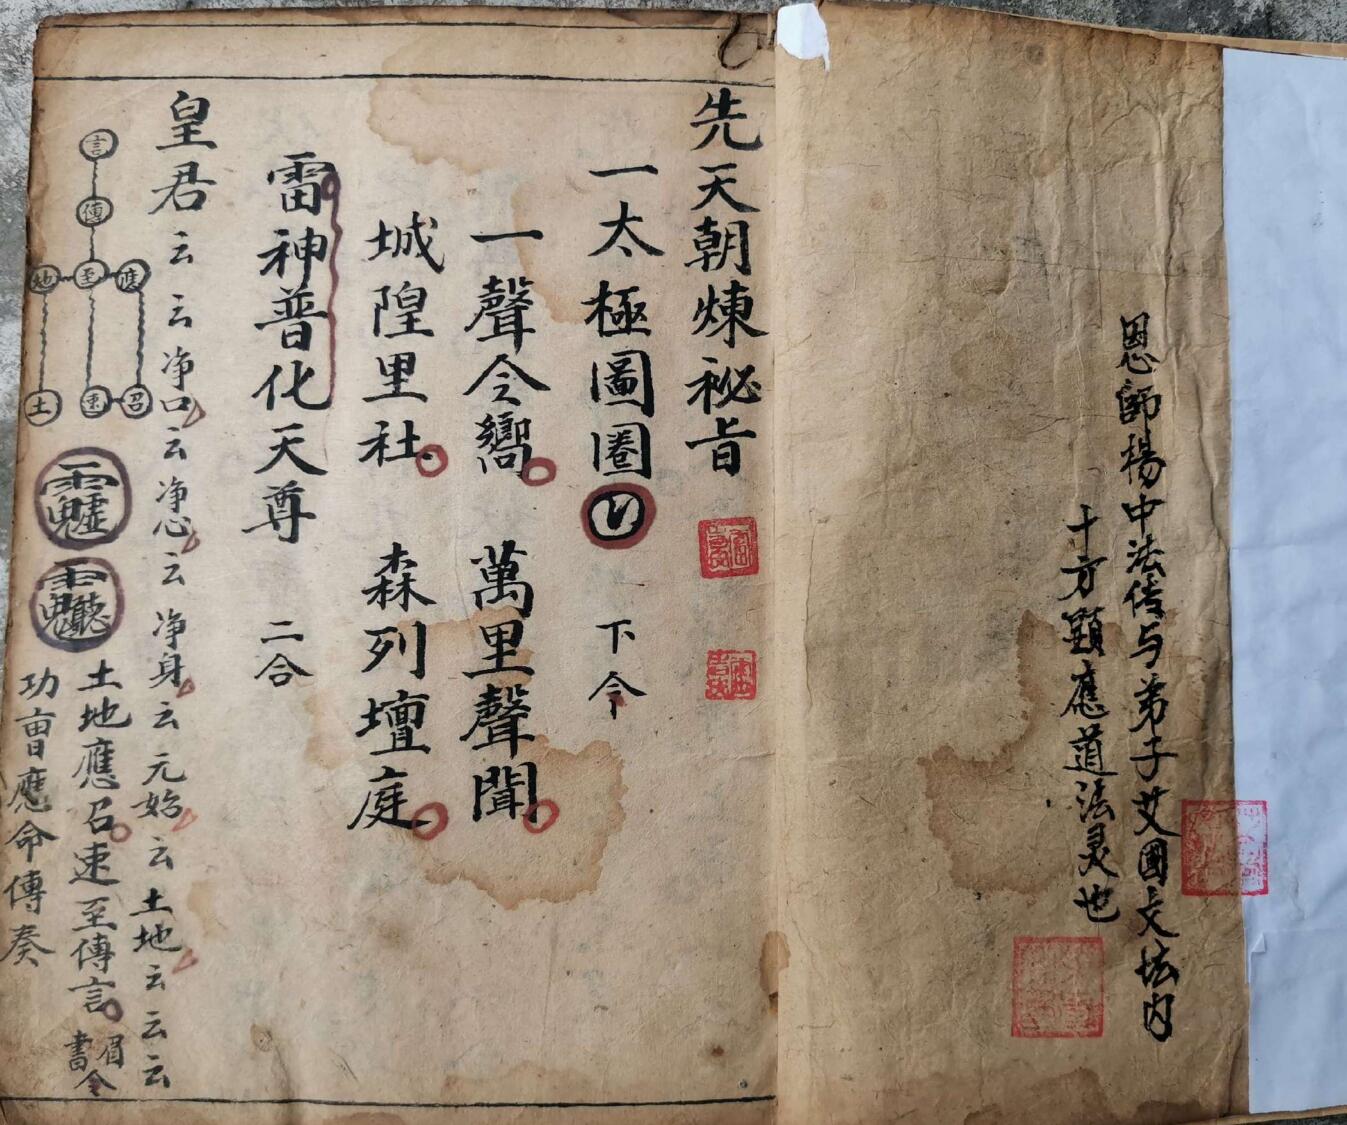 恩師楊中法传与弟子艾國文坛内
十方顕應道法灵也
先天朝煉秘旨
一太極圖圈 下令
一聲令嚮 萬里聲聞
城隍里社 森列壇庭
雷神普化天尊 二合
皇君云云净口云净心云净身云元始云土地云云云
言
傳
地至應
土速召
土地應召速至傳言
眉令
書
功曹應命傳奏